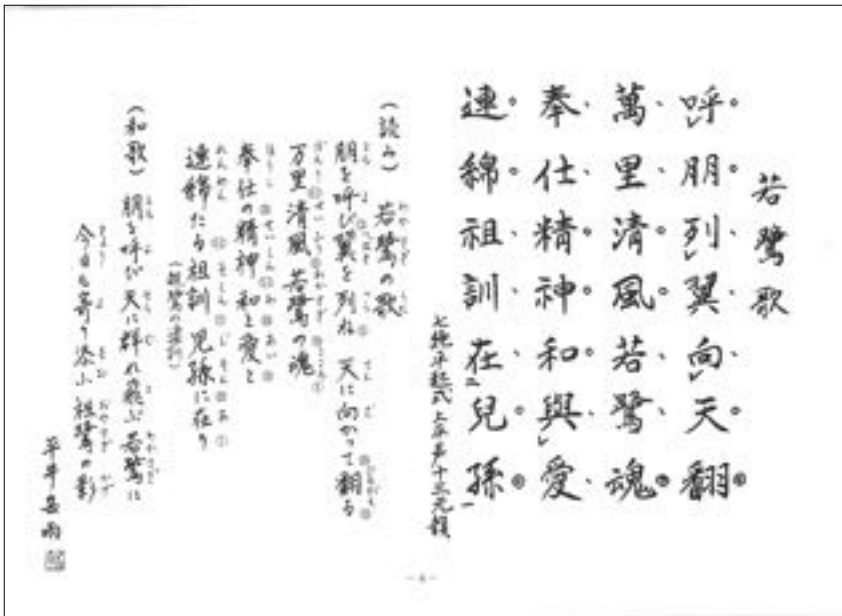 若鷺歌
呼朋列翼向天翻
萬里清風若鷺魂
奉仕精神和與愛
連綿祖訓在兒孫
七絶平起式上平声十三元韻
(読み) 若鷺の歌
朋を呼び翼を列ね 天に向かって翻る
万里清風 若鷺の魂
奉仕の精神 和と愛と
連綿たる祖訓 児孫に在り
(和歌) 朋を呼び 天に群れ飛ぶ 若鷺に
今日も寄り添ふ 祖鷺の影